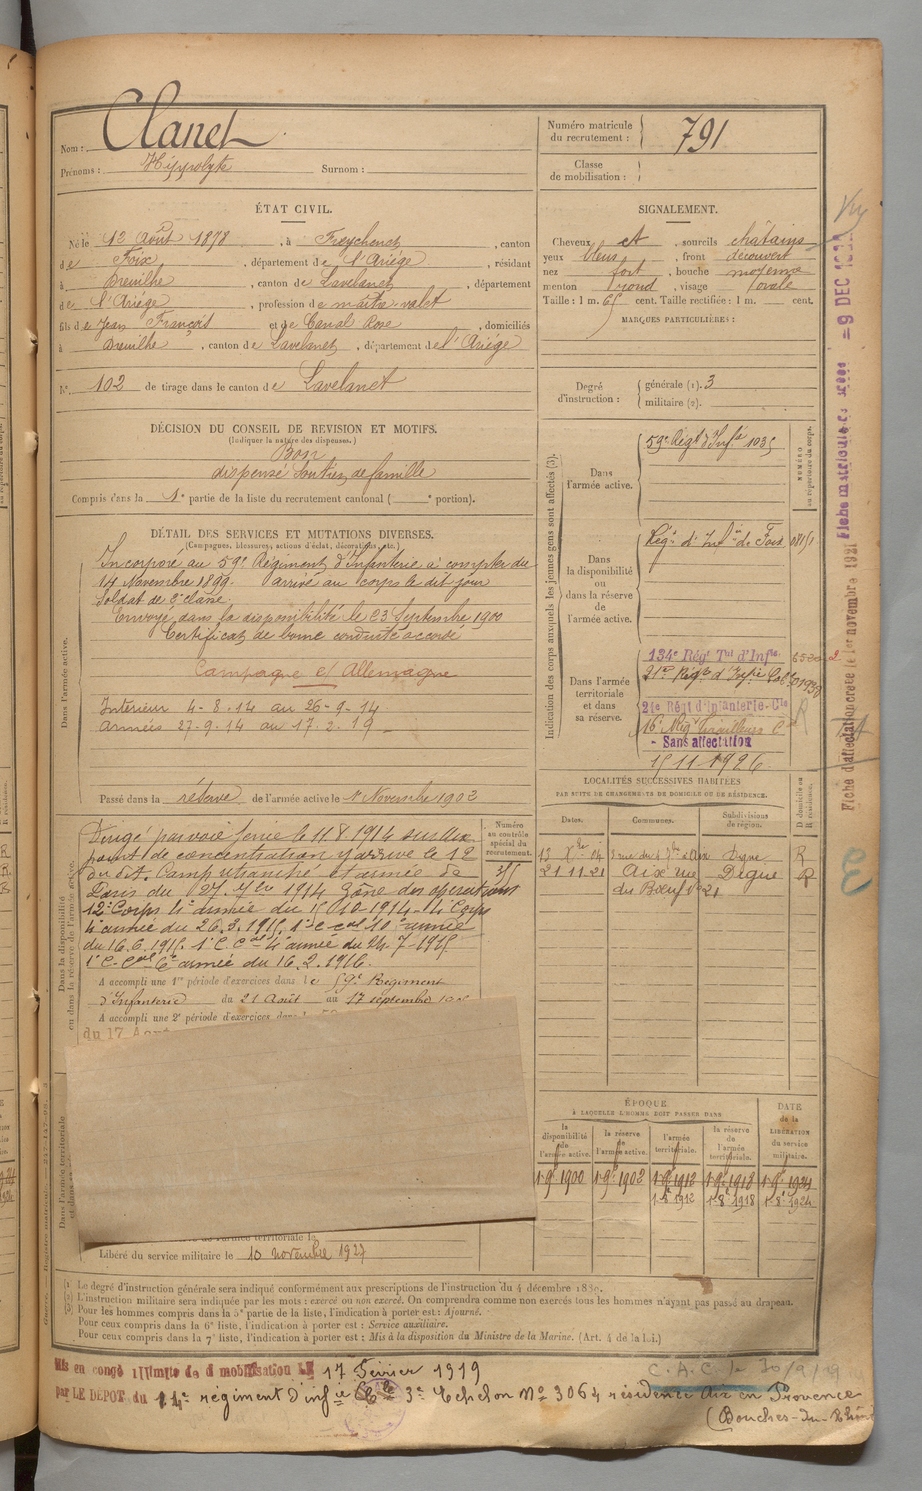 Nom : Clanet
Prénoms : Hippolyte Surnom :
Numéro matricule du recrutement : 791
Classe de mobilisation :
ÉTAT CIVIL.
Né le 12 Août 1878, à Freychenet, canton
de Foix, département de l'Ariège, résidant
à Dreuilhe, canton de Lavelanet, département
de l'Ariège, profession de maître valet
fils de Jean François et de Canal Rose, domiciliés
à Dreuilhe, canton de Lavelanet, département de l'Ariège
N° 102 de tirage dans le canton de Lavelanet
SIGNALEMENT.
Cheveux et, sourcils châtains
yeux bleus, front découvert
nez fort, bouche moyenne
menton rond, visage ovale
Taille : 1 m. 65 cent. Taille rectifiée : 1 m. cent.
MARQUES PARTICULIÈRES :
Degré d'instruction : générale (1). 3
militaire (2).
DÉCISION DU CONSEIL DE REVISION ET MOTIFS.
(Indiquer la nature des dispenses.)
Bon
dispensé Soutien de famille
Compris dans la 1e partie de la liste du recrutement cantonal ( e portion).
DÉTAIL DES SERVICES ET MUTATIONS DIVERSES.
(Campagnes, blessures, actions d'éclat, décorations, etc.)
Dans l'armée active.
Incorporé au 59e Régiment d'Infanterie à compter du
14 Novembre 1899. arrivé au corps le dit jour
Soldat de 2e classe.
Envoyé dans la disponibilité le 23 Septembre 1900
Certificat de bonne conduite accordé
Campagne c/ Allemagne
Intérieur 4-8-14 au 26-9-14
Armées 27-9-14 au 17-2-19
Passé dans la réserve de l'armée active le 1 Novembre 1902
Indication des corps auxquels les jeunes gens sont affectés (3).
NUMÉRO
au répertoire du corps.
Dans l'armée active.
59e Régt d'Infie
Dans la disponibilité ou dans la réserve de l'armée active.
Régt d'Infie de Foix
Dans l'armée territoriale et dans sa réserve.
134e Régt Tal d'Infie
21e Régt d'Infie Cole
21e Régt d'Infanterie Cle
16e Régt Tirailleurs
- Sans affectation
15 11 1926
LOCALITÉS SUCCESSIVES HABITÉES
PAR SUITE DE CHANGEMENTS DE DOMICILE OU DE RÉSIDENCE.
Dates. Communes. Subdivisions de région.
D domicile ou R résidence.
Digne R
21.11.21 Aix rue Digne R
du Bœuf 21
Numéro au contrôle spécial du recrutement.
Dans la disponibilité ou dans la réserve de l'armée active.
Dirigé par voie ferrée le 11 8 1914 sur Aix
point de concentration y arrive le 12
du dit. Camp retranché et armée de
Paris du 27 7bre 1914 Zône des opérations
12e Corps 4e armée du 15 10-1914. 4e Corps
4e armée du 26.3.1915. 1er C. Cal 10e armée
du 16.6.1915. 1er C. Cal 4e armée du 24.7-1915
1er C. Cal 6e armée du 16.2.1916.
A accompli une 1re période d'exercices dans le 59e Régiment
d'Infanterie du 21 Août au 17 septembre
A accompli une 2e période d'exercices dans
du 17 Août
Dans l'armée territoriale
ÉPOQUE
À LAQUELLE L'HOMME DOIT PASSER DANS
DATE de la LIBÉRATION du service militaire.
la disponibilité de l'armée active. la réserve de l'armée active. l'armée territoriale. la réserve de l'armée territoriale.
1-9e 1900 1-9e 1902 1-9e 1912 1-9e 1918 1-9e 1924
1-8e 1912 1-8e 1918 1-8e 1924
Libéré du service militaire le 10 novembre 1927
(1) Le degré d'instruction générale sera indiqué conformément aux prescriptions de l'instruction du 4 décembre 1889.
(2) L'instruction militaire sera indiquée par les mots : exercé ou non exercé. On comprendra comme non exercés tous les hommes n'ayant pas passé au drapeau.
(3) Pour les hommes compris dans la 5e partie de la liste, l'indication à porter est : Ajourné.
Pour ceux compris dans la 6e liste, l'indication à porter est : Service auxiliaire.
Pour ceux compris dans la 7e liste, l'indication à porter est : Mis à la disposition du Ministre de la Marine. (Art. 4 de la loi.)
Mis en congé illimité de démobilisation LE 17 Février 1919
par LE DEPOT du 14e régiment d'infie Cle 3e Echelon No 3064 résidence Aix en Provence
(Bouches-du-Rhône
C.A.C. le 30/9/19
Fiche d'affectation créée le 1er novembre 1921
Fiche matriculaire créée =9 DEC